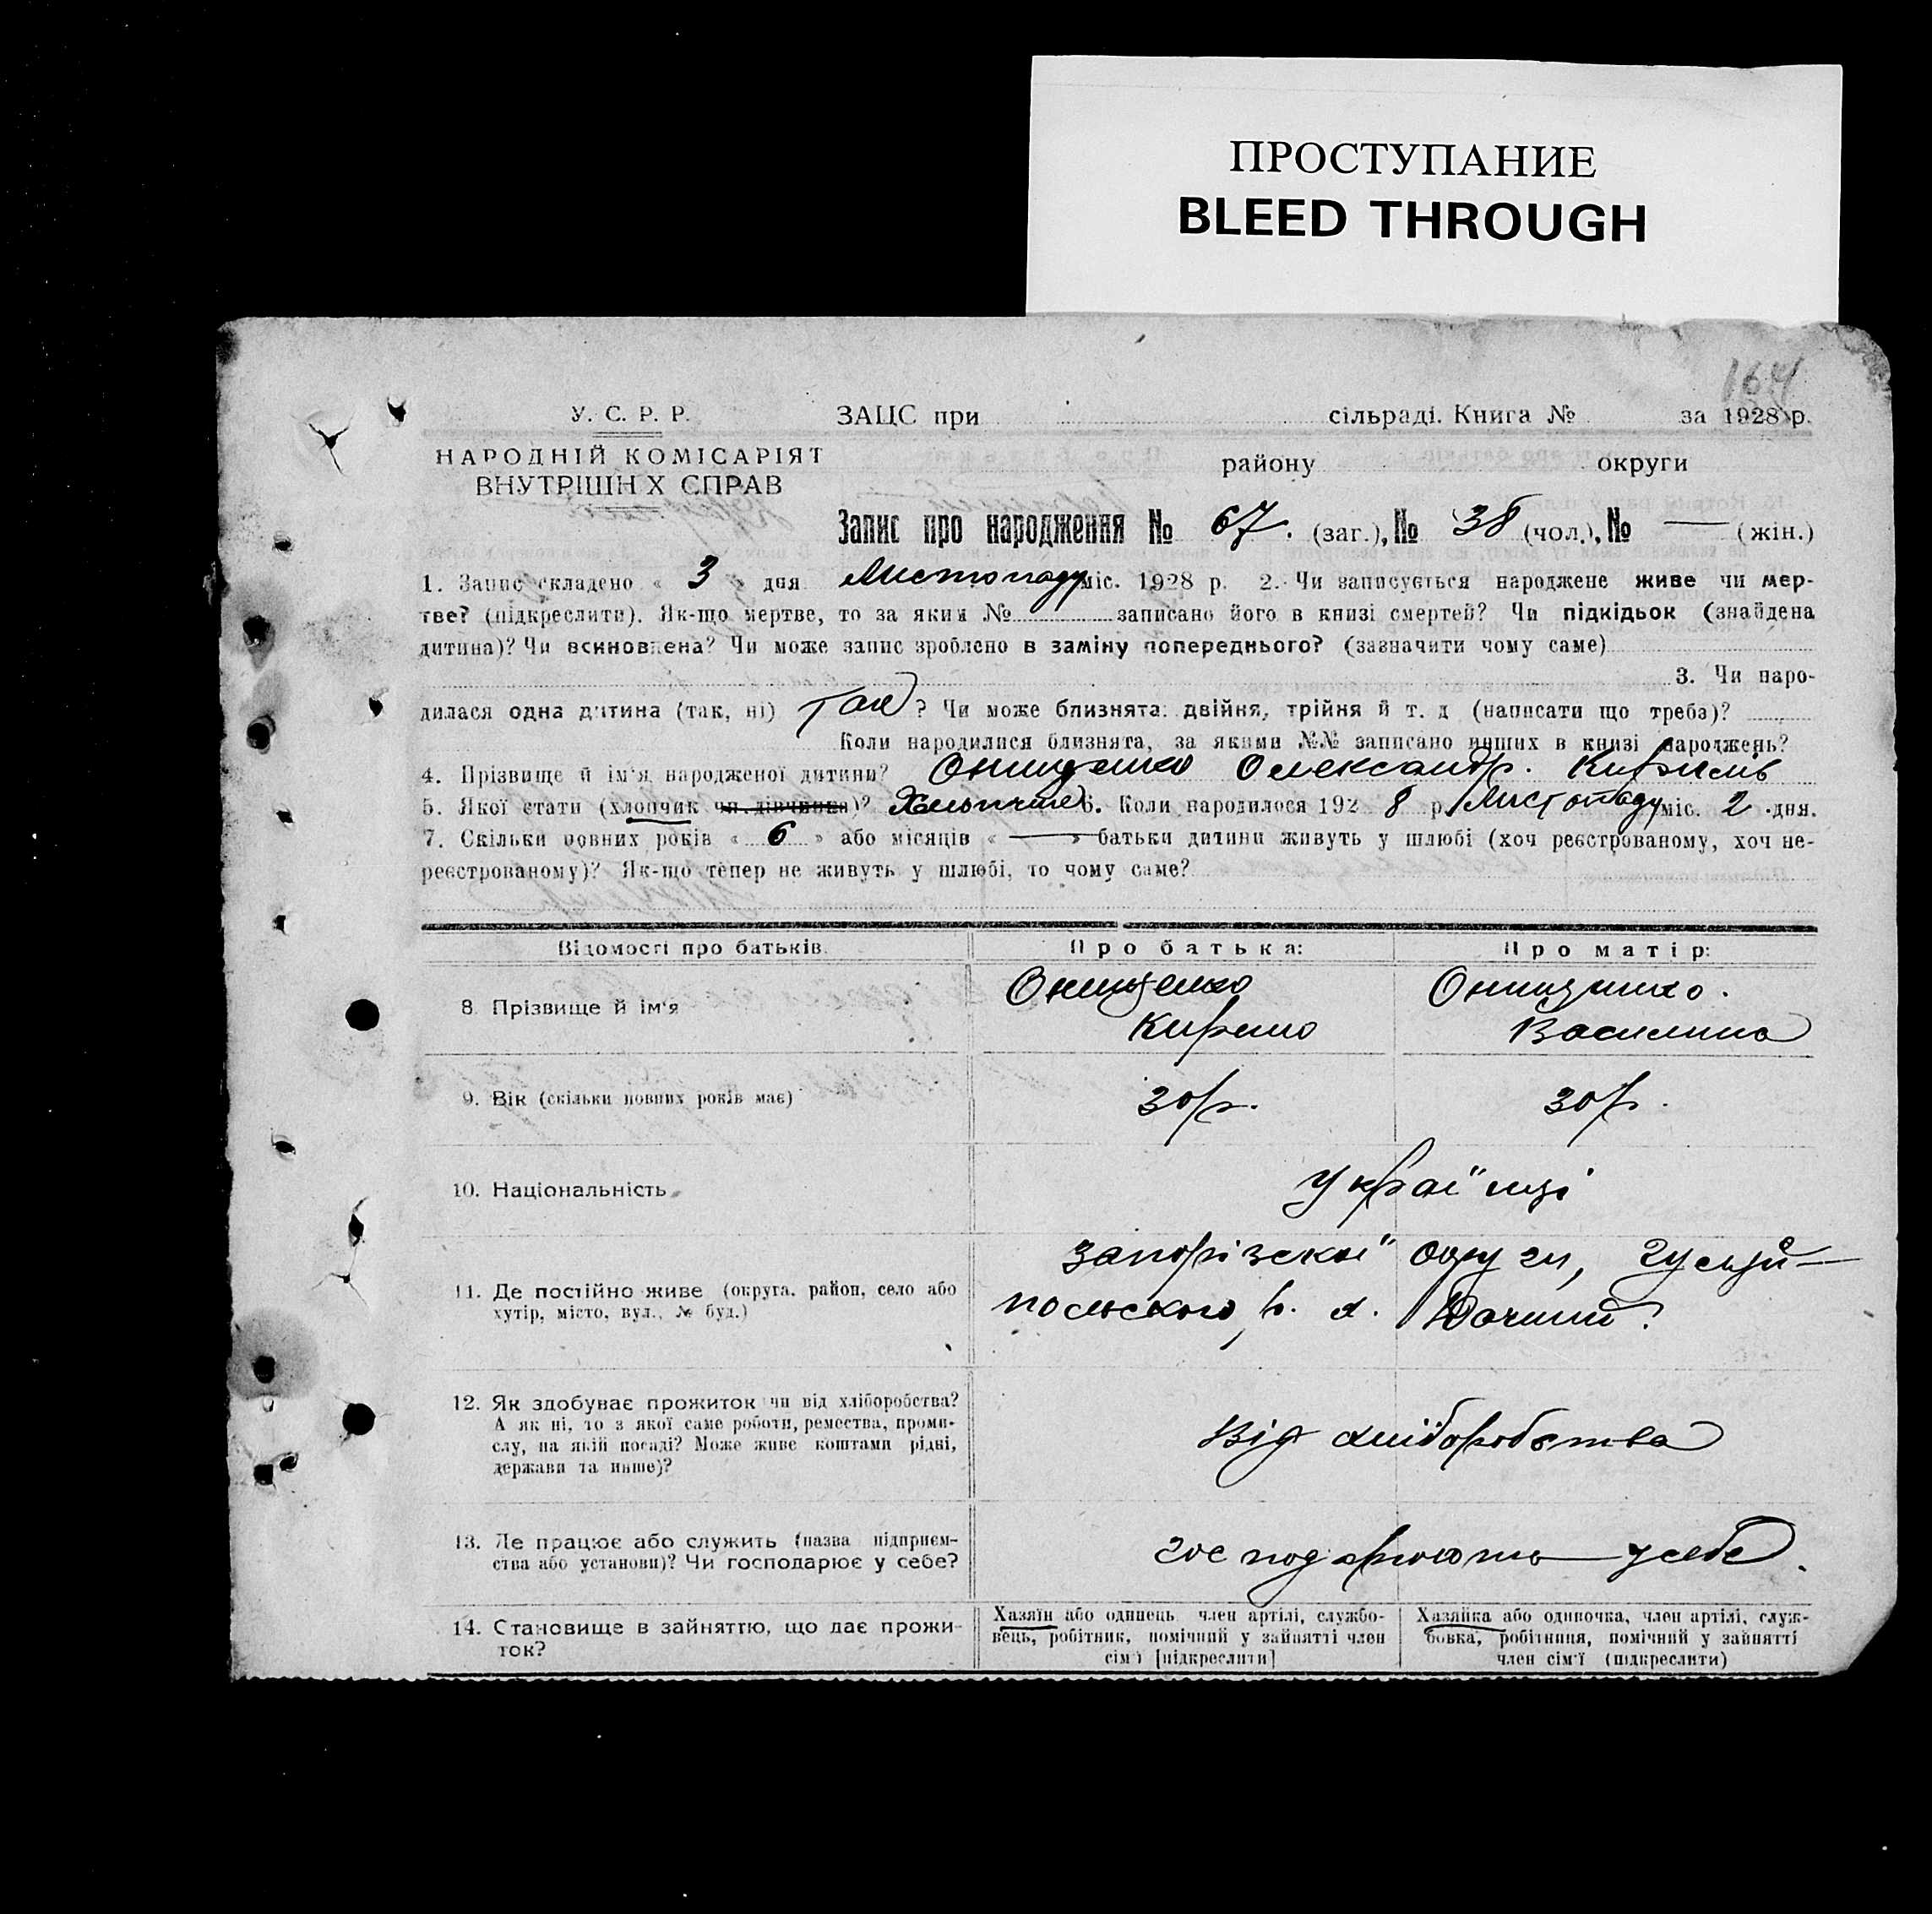 ПРОСТУПАНИЕ
BLEED THROUGH
164
У. С. Р. Р.
НАРОДНІЙ КОМІСАРІЯТ
ВНУТРІШНІХ СПРАВ
ЗАЦС при сільраді. Книга № за 1928 р.
району округи
Запис про народження № 67. (заг.), № 38 (чол.), № — (жін.)
1. Запис складено « 3 » дня Листопаду міс. 1928 р. 2. Чи записується народжене живе чи мер-
тве? (підкреслити). Як-що мертве, то за яким № записано його в книзі смертей? Чи підкідьок (знайдена
дитина)? Чи всиновлена? Чи може запис зроблено в заміну попереднього? (зазначити чому саме)
3. Чи наро-
дилася одна дитина (так, ні) Так? Чи може близнята: двійня, трійня й т. д (написати що треба)?
Коли народилися близнята, за якими №№ записано инших в книзі народжень?
4. Прізвище й ім'я народженої дитини? Онищенко Олександр. Кирилів
5. Якої стати (хлопчик чи дівчинка)? Хлопчик 6. Коли народилося 192 8 р. Листопаду міс. 2 дня.
7. Скільки повних років « 6 » або місяців « — » батьки дитини живуть у шлюбі (хоч реєстрованому, хоч не-
реєстрованому)? Як-що тепер не живуть у шлюбі, то чому саме?
Відомості про батьків. Про батька: Про матір:
8. Прізвище й ім'я Онищенко Кирило Онищенко. Василина
9. Вік (скільки повних років має) 30 р. 30 р.
10. Національність Українці
11. Де постійно живе (округа, район, село або
хутір, місто, вул., № буд.)
Запорізської округи, Гуляй-
польського р. х.
12. Як здобуває прожиток чи від хліборобства?
А як ні, то з якої саме роботи, ремества, проми-
слу, на якій посаді? Може живе коштами рідні,
держави та инше)?
Від хліборобства
13. Де працює або служить (назва підприєм-
ства або установи)? Чи господарює у себе?
господарюють у себе.
14. Становище в зайняттю, що дає прожи-
ток?
Хазяїн або одинець член артілі, службо-
вець, робітник, помічний у зайнятті член
сім'ї [підкреслити]
Хазяйка або одиночка, член артілі, служ-
бовка, робітниця, помічний у зайнятті
член сім'ї (підкреслити)